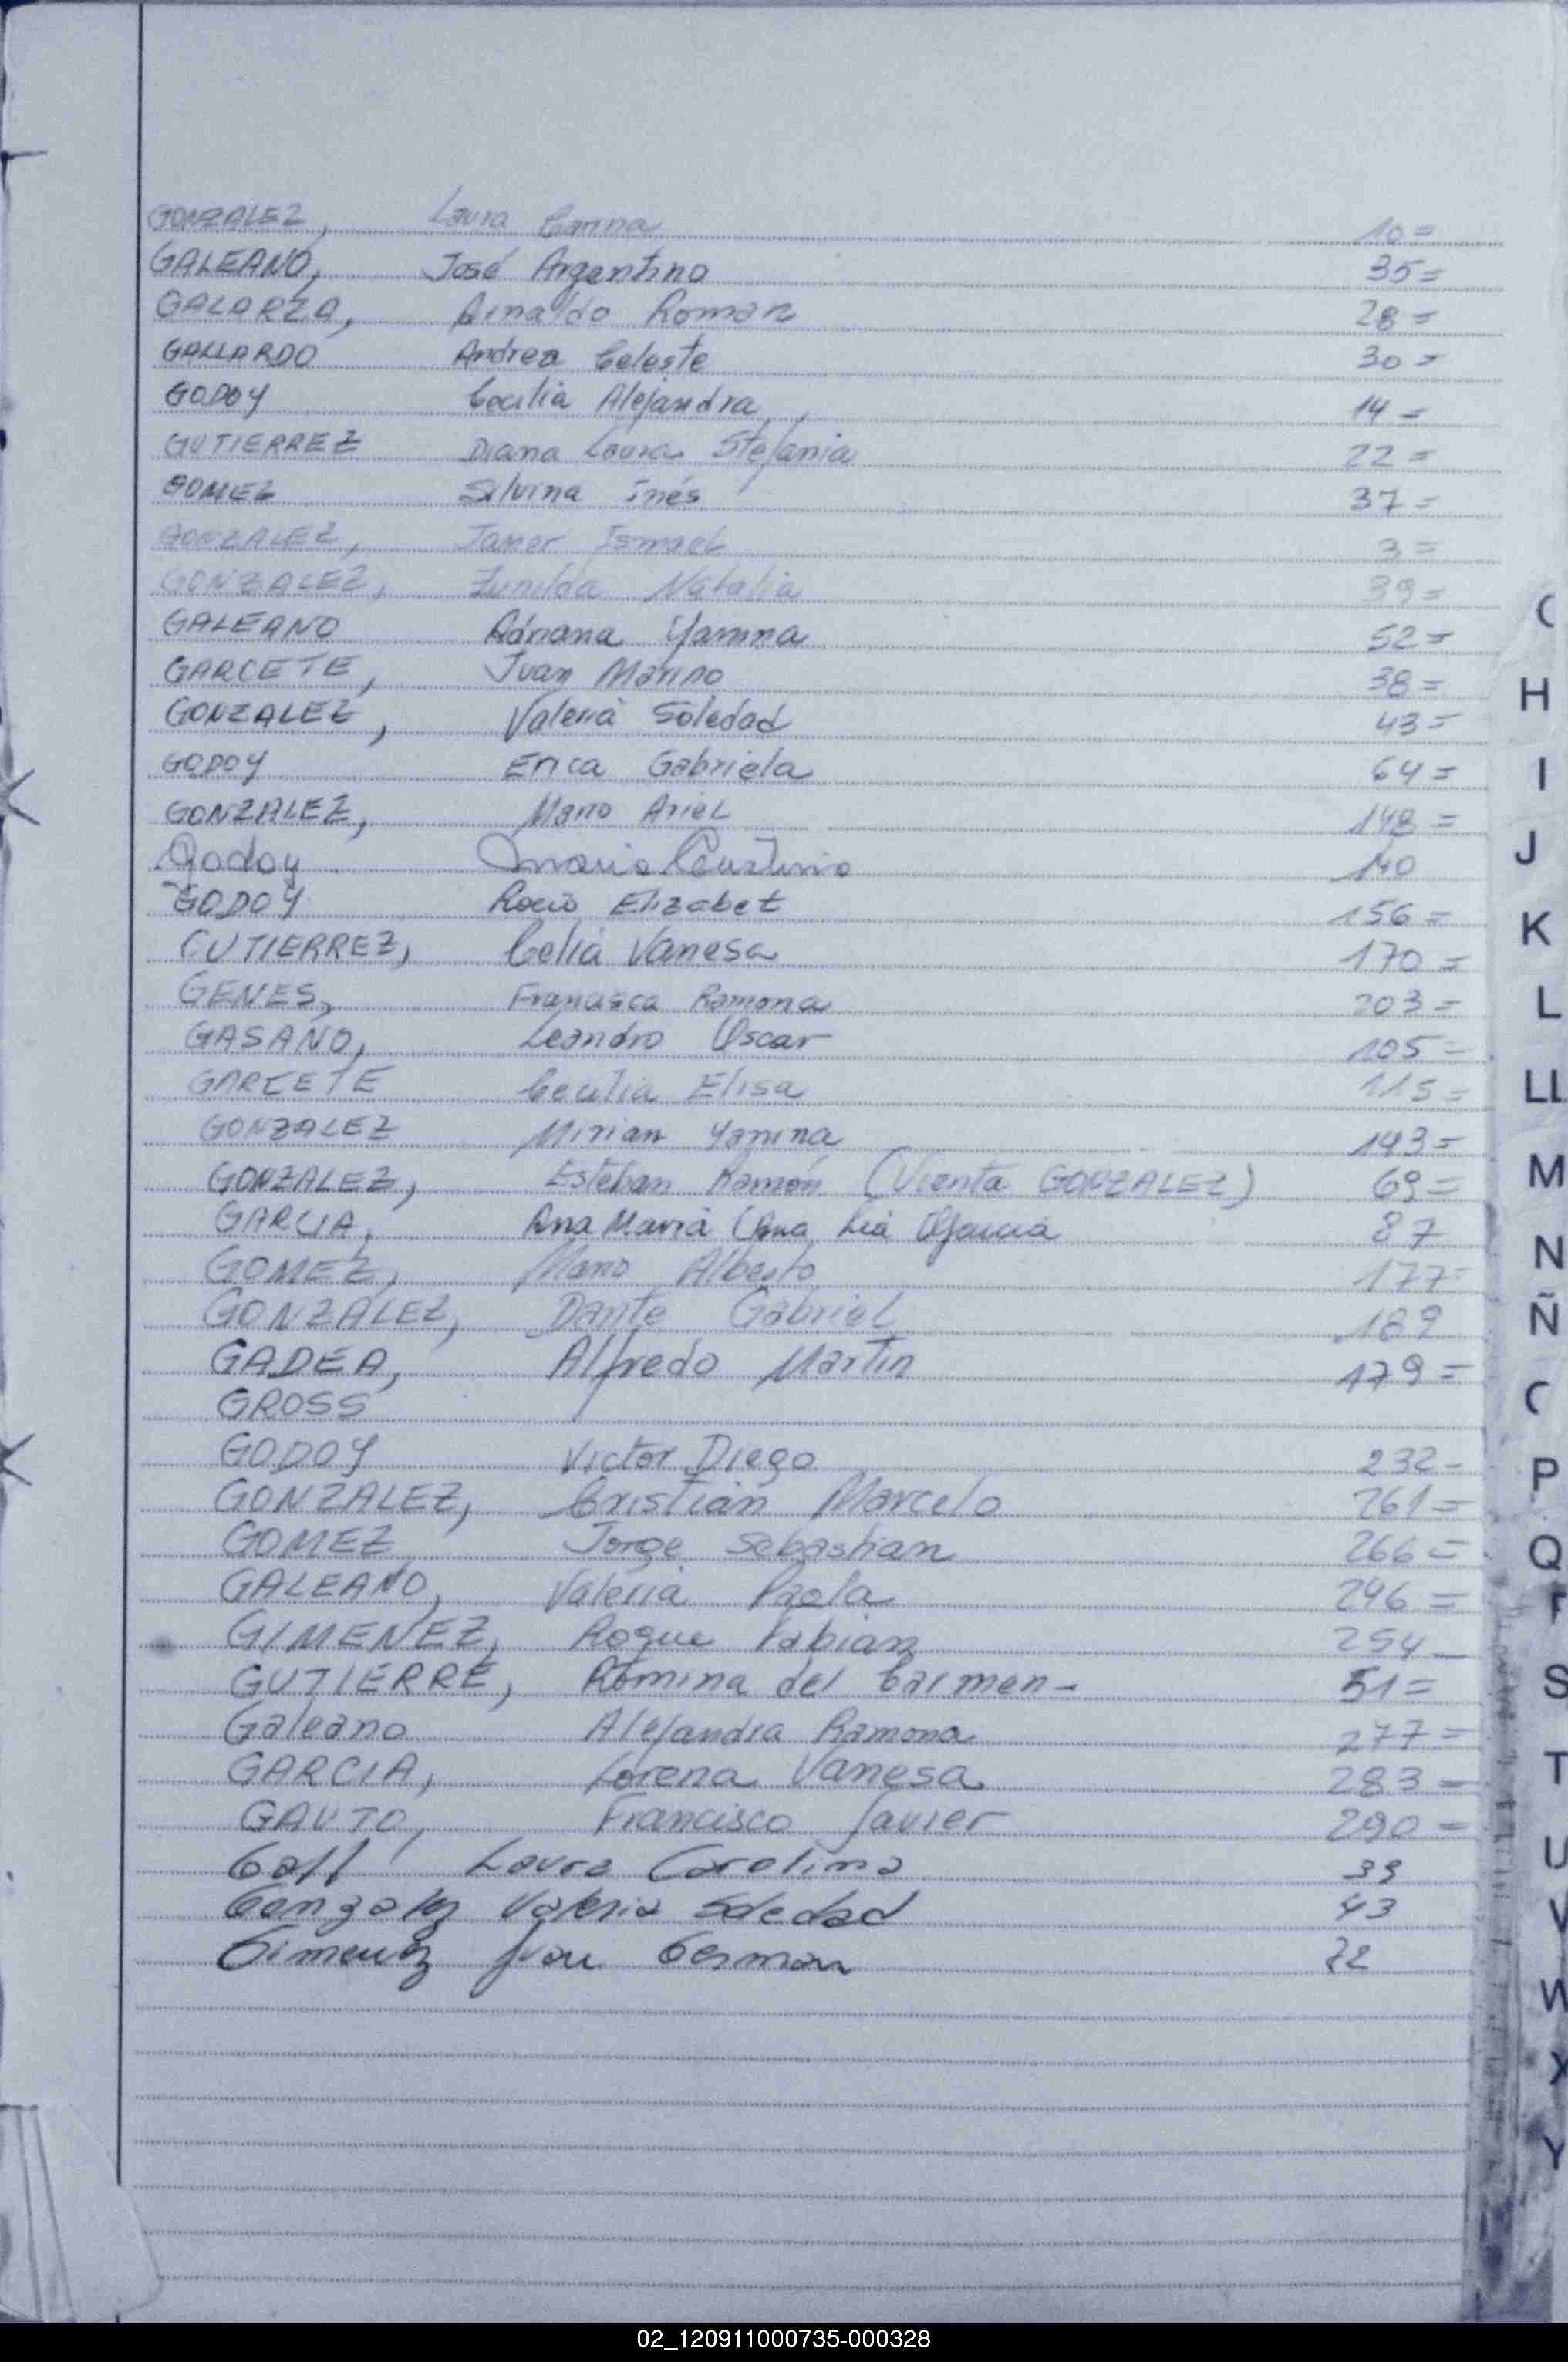 GONZALEZ, Laura Carina 10=
GALEANO, José Argentino 35=
GALARZA, Arnaldo Roman 28=
GALLARDO Andrea Celeste 30=
GODOY Cecilia Alejandra 14=
GUTIERREZ Diana Laura Stefania 22=
GOMEZ Silvina Inés 37=
GONZALEZ, Ismael 3=
GONZALEZ, Zunilda Natalia 39=
GALEANO Adriana Yamina 52=
GARCETE, Juan Marino 38=
GONZALEZ, Valeria Soledad 43=
GODOY Erica Gabriela 64=
GONZALEZ, Mario Ariel 148=
Godoy Maria 140
GODOY Rocio Elizabet 156=
GUTIERREZ, Celia Vanesa 170=
GENES, Francisca Ramona 203=
GASANO, Leandro Oscar 105=
GARCETE Cecilia Elisa 115=
GONZALEZ Mirian Yanina 143=
GONZALEZ, Esteban Ramón (Vicenta GONZALEZ) 69=
GARCIA, Ana Maria (Ana Lia Garcia 87
GOMEZ, Mario Alberto 177
GONZALEZ, Dante Gabriel 189
GADEA, Alfredo Martin 179=
GROSS
GODOY Victor Diego 232-
GONZALEZ, Cristian Marcelo 261=
GOMEZ Jorge Sebastian 266=
GALEANO, Valeria Paola 246=
GIMENEZ, Roque Fabian 254-
GUTIERRE, Romina del Carmen- 51=
Galeano Alejandra Ramona 277=
GARCIA, Lorena Vanesa 283=
GAUTO, Francisco Javier 290=
Gall Laura Carolina 39
Gonzalez Valeria Soledad 43
Gimenez Juan German 72
C
H
I
J
K
L
LL
M
N
Ñ
P
Q
S
T
U
V
W
X
Y
02_120911000735-000328